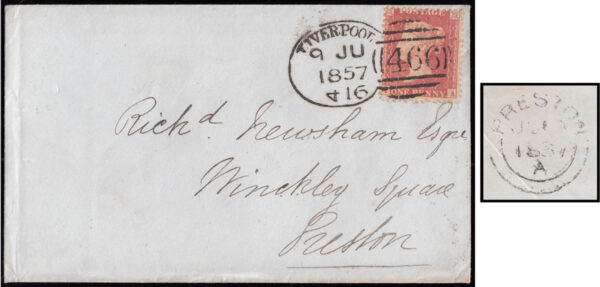 LIVERPOOL
9 JU
1857
416
466
POSTAGE
ONE PENNY
Rich^d Newsham Esqre
Winckley Square
Preston
PRESTON
JU
1857
A